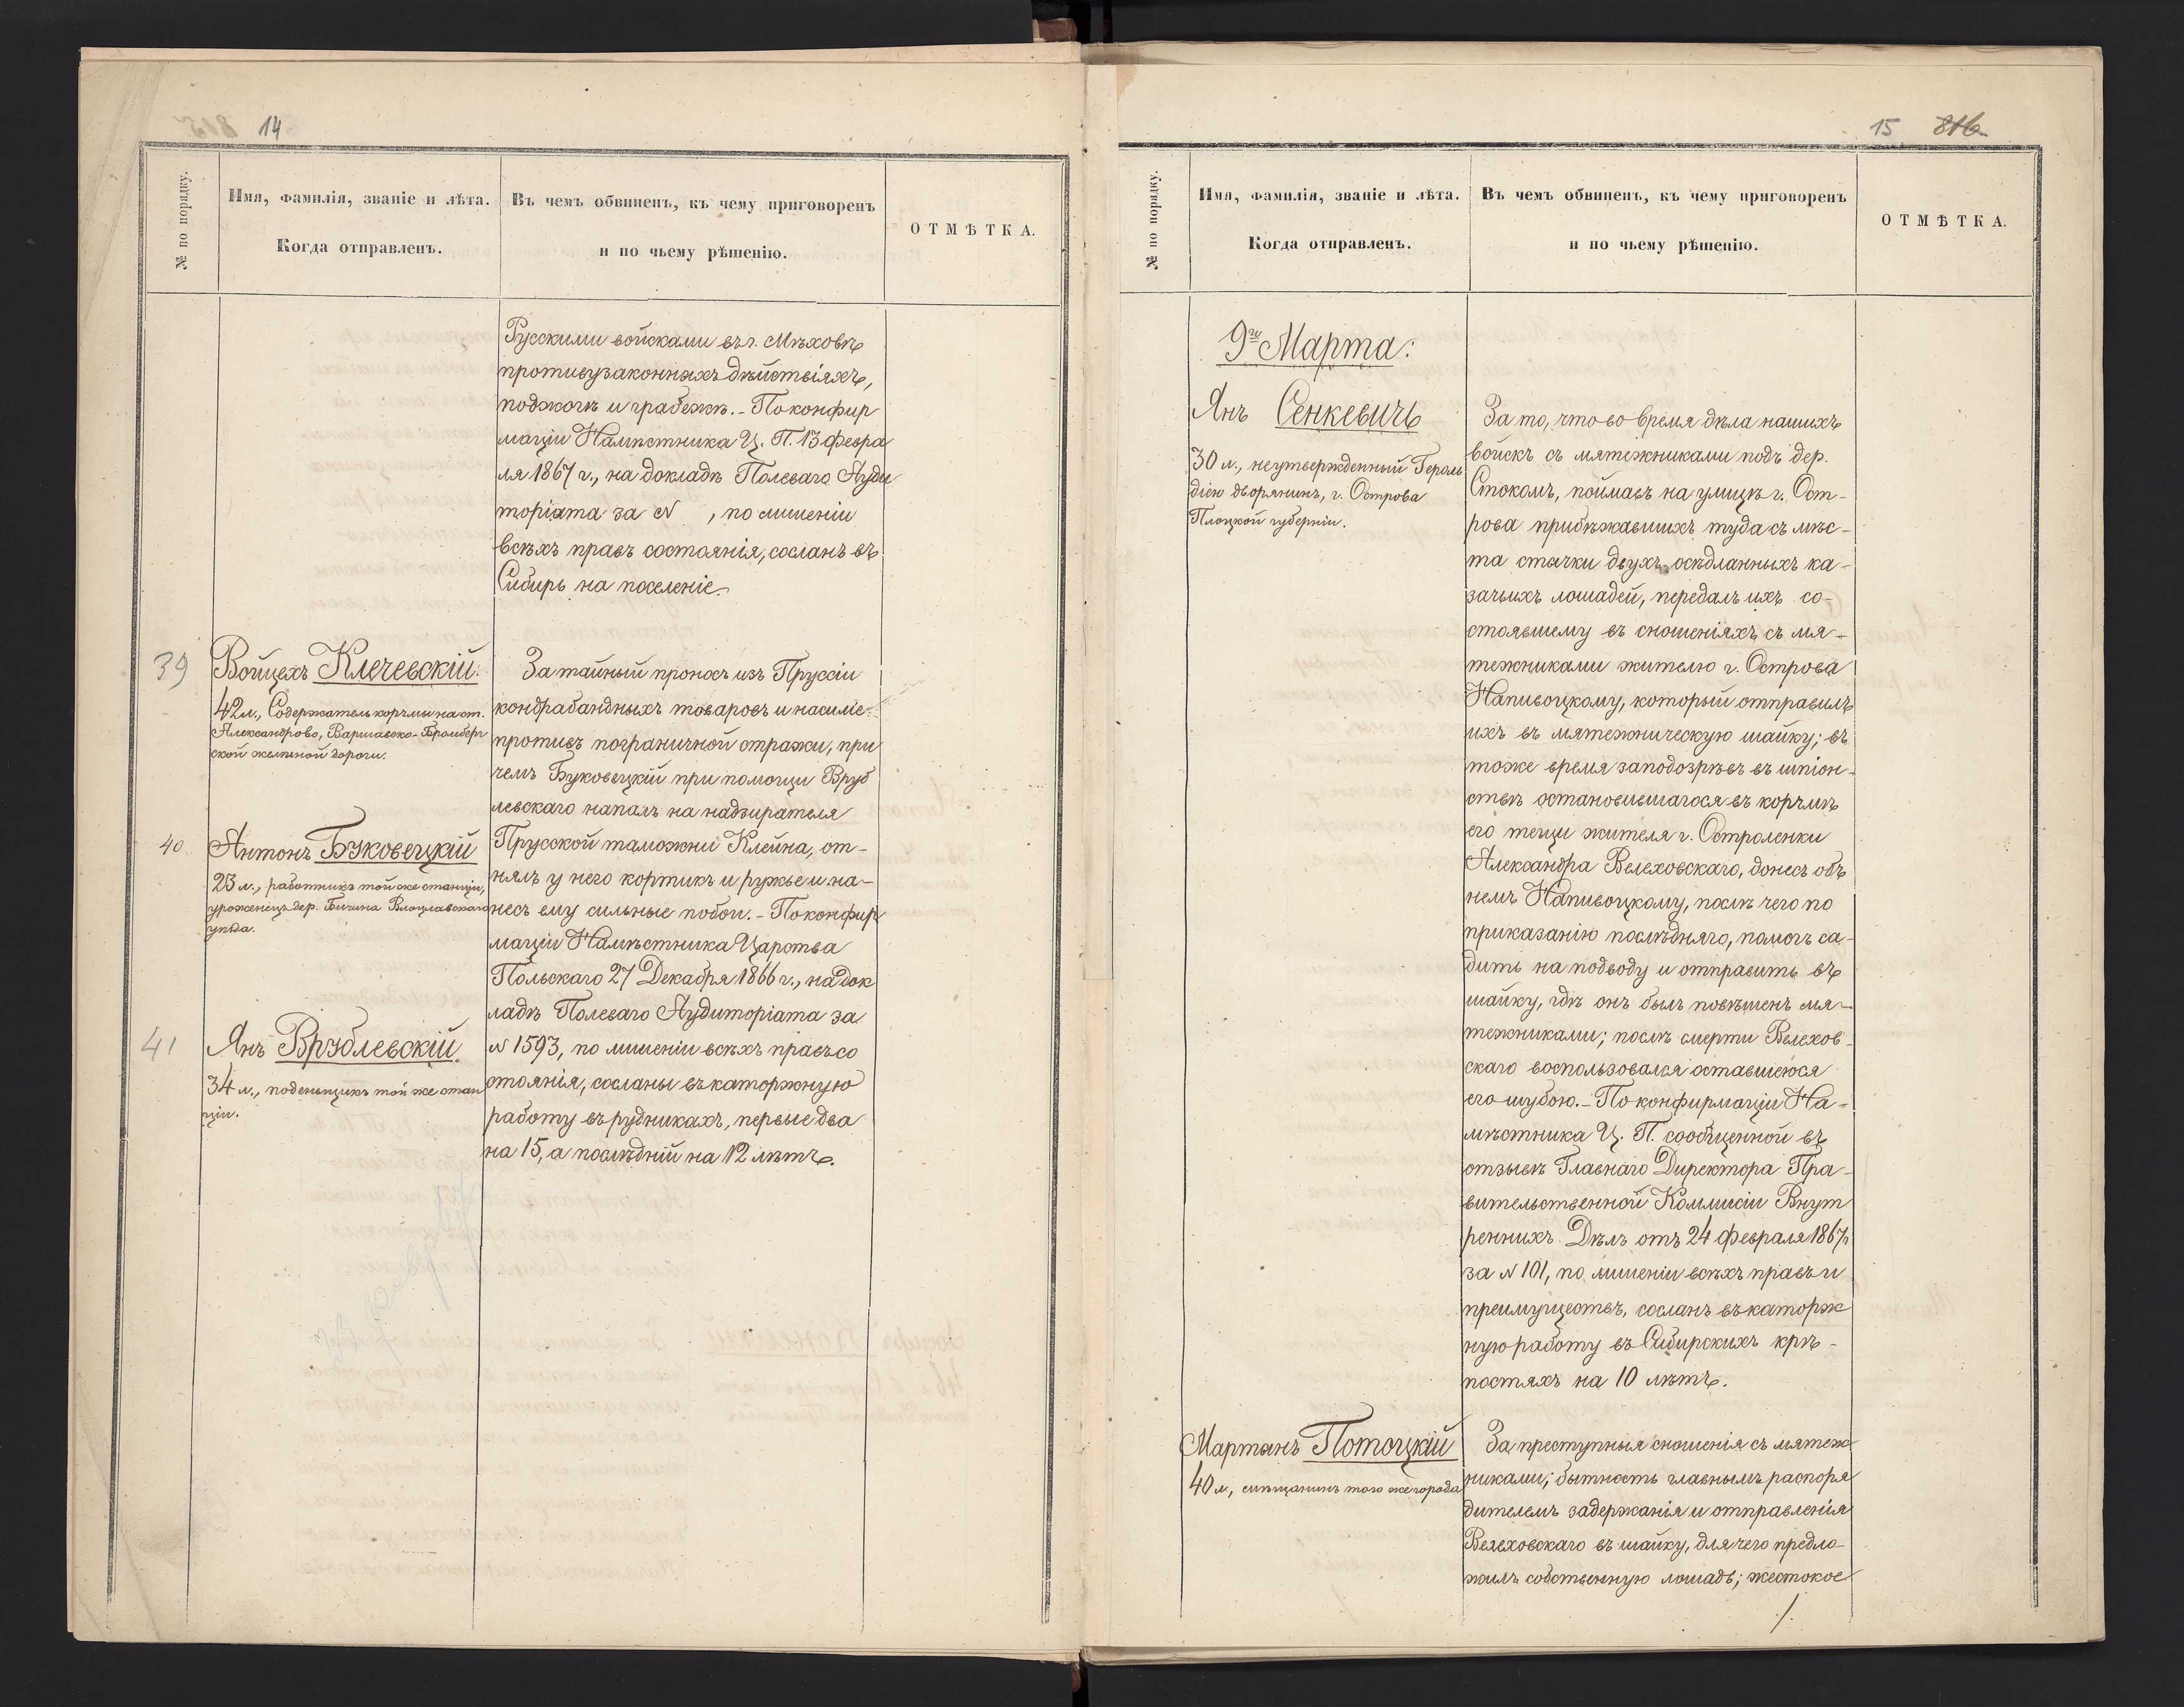 14
№ по порядку.
Имя, фамилія, званіе и лѣта.
Когда отправленъ.
Въ чемъ обвиненъ, къ чему приговоренъ
и по чьему рѣшенію.
ОТМѢТКА.
Русскими войсками въ г. Мѣховѣ
противузаконныхъ дѣйствіяхъ,
поджогѣ и грабежѣ. - По конфир
маціи Намѣстника Ц. П. 13 Февра
ля 1867 г., на докладѣ Полеваго Ауди
торіата за № , по лишеніи
всѣхъ правъ состоянія, сосланъ въ
Сибирь на поселеніе.
39
Войцехъ Клечевскій.
42 л., Содержатель корчмы на ст.
Александрово, Варшавско-Бромберг
ской желѣзной дороги.
40
Антонъ Буковецкій
23 л., работникъ той же станціи,
уроженецъ дер. Бичина Влоцлавскаго
уѣзда.
41
Янъ Врублевскій.
34 л., поденьщикъ той же стан
ціи.
За тайный проносъ изъ Пруссіи
контрабандныхъ товаровъ и насиліе
противъ пограничной стражи, при
чемъ Буковецкій при помощи Вруб
левскаго напалъ на надзирателя
Прусской таможни Клейна, от-
нялъ у него кортикъ и ружье и на-
несъ ему сильные побои. - По конфир
маціи Намѣстника Царства
Польскаго 27 Декабря 1866 г., на док
ладѣ Полеваго Аудиторіата за
№ 1593, по лишеніи всѣхъ правъ со
стоянія, сосланы въ каторжную
работу въ рудникахъ, первые два
на 15, а послѣдній на 12 лѣтъ.
15 816
№ по порядку.
Имя, фамилія, званіе и лѣта.
Когда отправленъ.
Въ чемъ обвиненъ, къ чему приговоренъ
и по чьему рѣшенію.
ОТМѢТКА.
9го Марта:
Янъ Сенкевичъ
30 л., неутвержденный Героль
діею дворянинъ, г. Острова
Плоцкой губерніи.
За то, что во время дѣла нашихъ
войскъ съ мятежниками подъ дер.
Стокомъ, поймавъ на улицѣ г. Ост-
рова прибѣжавшихъ туда съ мѣс-
та стычки двухъ осѣдланныхъ ка-
зачьихъ лошадей, передалъ ихъ со-
стоявшему въ сношеніяхъ съ мя-
тежниками жителю г. Острова
Напивоцкому, который отправилъ
ихъ въ мятежническую шайку; въ
тоже время заподозрѣвъ въ шпіон-
ствѣ остановившагося въ корчмѣ
его тещи жителя г. Остроленки
Александра Велеховскаго, донесъ объ
немъ Напивоцкому, послѣ чего по
приказанію послѣдняго, помогъ са-
дить на подводу и отправить въ
шайку, гдѣ онъ былъ повѣшенъ мя-
тежниками; послѣ смерти Велехов-
скаго воспользовался оставшеюся
его шубою. - По конфирмаціи На-
мѣстника Ц. П. сообщенной въ
отзывѣ Главнаго Директора Пра-
вительственной Коммисіи Внут
реннихъ Дѣлъ отъ 24 Февраля 1867 г.
за № 101, по лишеніи всѣхъ правъ и
преимуществъ, сосланъ въ каторж
ную работу въ Сибирскихъ крѣ-
постяхъ на 10 лѣтъ.
Мартынъ Потоцкій
40 л., мѣщанинъ того же города
За преступныя сношенія съ мятеж
никами; бытность главнымъ распоря
дителемъ задержанія и отправленія
Велеховскаго въ шайку, для чего предло-
жилъ собственную лошадь; жестокое